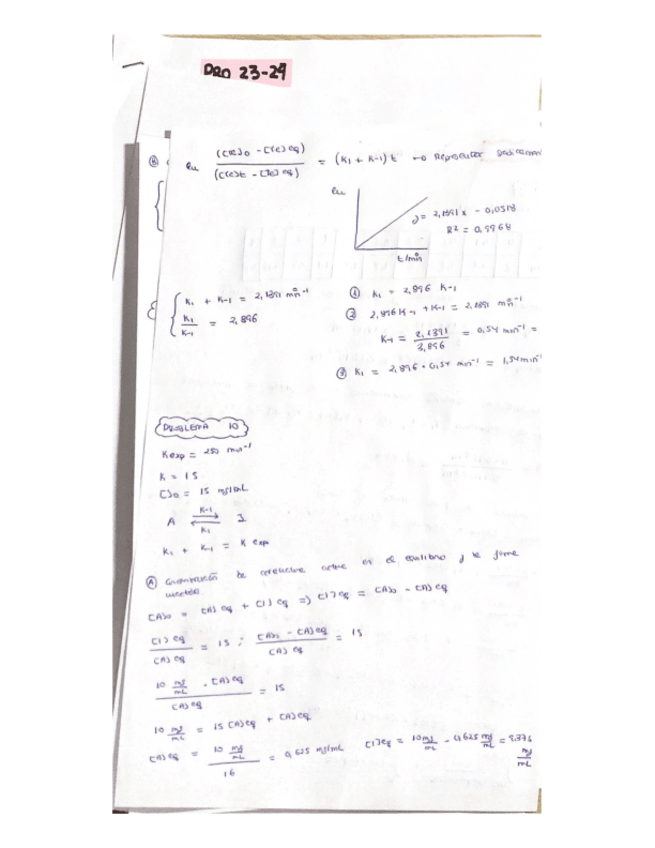 PRO 23-24
(B)
ln ([re]0 - [re]eq) / ([re]t - [re]eq) = (K1 + K-1) t → Representar
ln
y = 2,1391x - 0,0518
R² = 0,9968
t/min
K1 + K-1 = 2,1391 min⁻¹
K1/K-1 = 2,896
① K1 = 2,896 K-1
② 2,896 K-1 + K-1 = 2,1391 min⁻¹
K-1 = 2,1391 / 3,896 = 0,54 min⁻¹ =
③ K1 = 2,896 · 0,54 min⁻¹ = 1,54 min⁻¹
PROBLEMA 10
Kexp = 250 min⁻¹
K = 15
[]0 = 15 mg/mL
A ⇄ I
K-1
K1
K1 + K-1 = K exp
(A) Concentración de activa en el equilibrio y la forma
inactiva
[A]0 = [A]eq + [I]eq => [I]eq = [A]0 - [A]eq
[I]eq / [A]eq = 15 ; [A]0 - [A]eq / [A]eq = 15
10 mg/mL - [A]eq / [A]eq = 15
10 mg/mL = 15 [A]eq + [A]eq
[A]eq = 10 mg/mL / 16 = 0,625 mg/mL [I]eq = 10 mg/mL - 0,625 mg/mL = 9,375 mg/mL